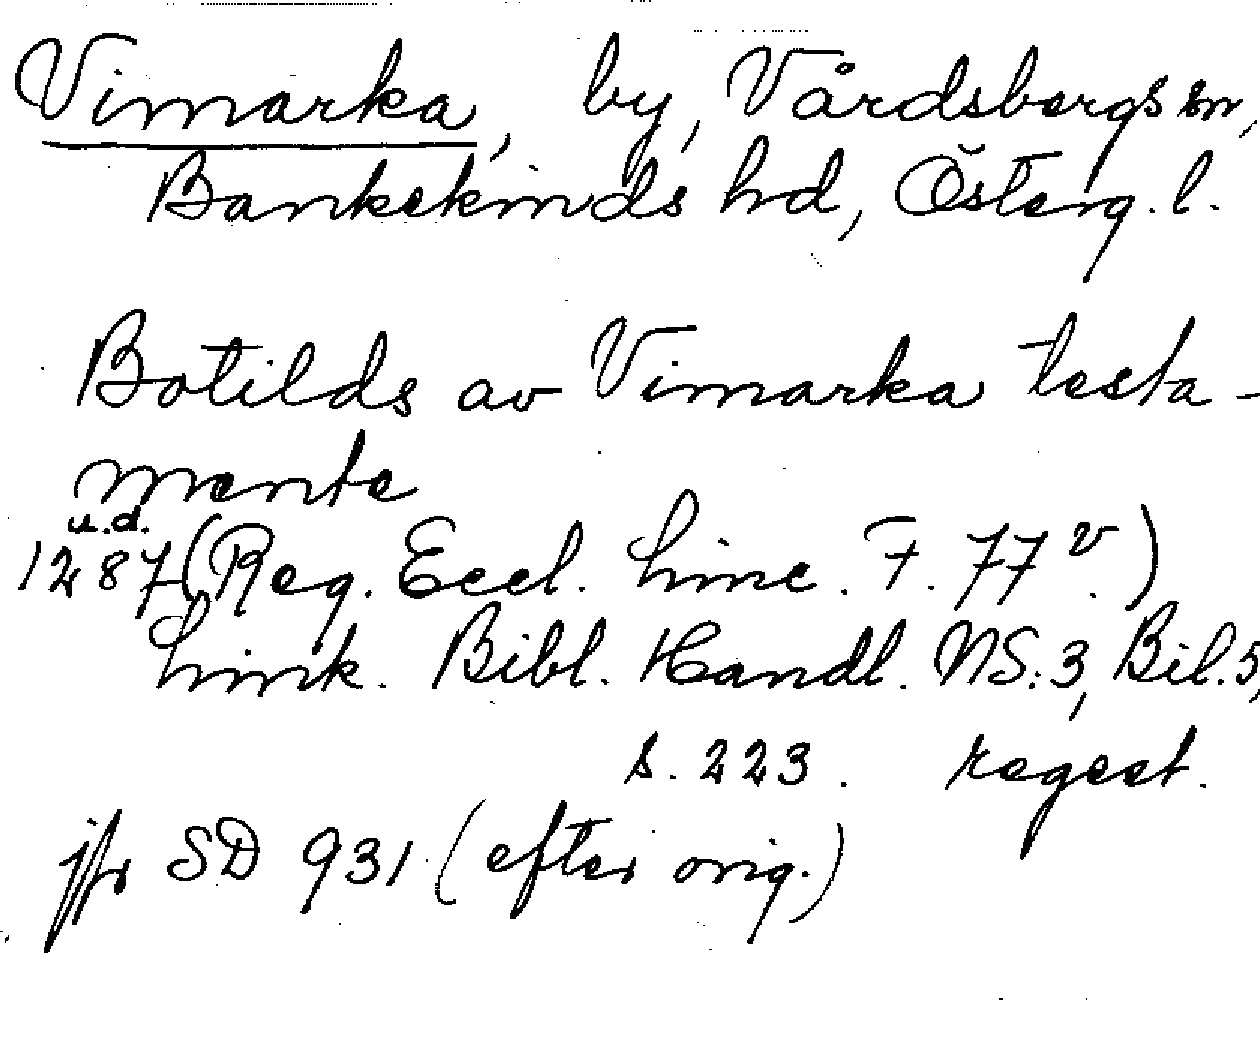 Vimarka, by, Vårdsbergs sn,
Bankekinds hd, Österg. l.
Botilds av Vimarka testa-
mente
u.d.
1287 (Reg. Eccl. Linc. F. 77 v.)
Link. Bibl. Handl. NS.3, Bil.5,
s. 223. regest.
jfr SD 931 (efter orig.)